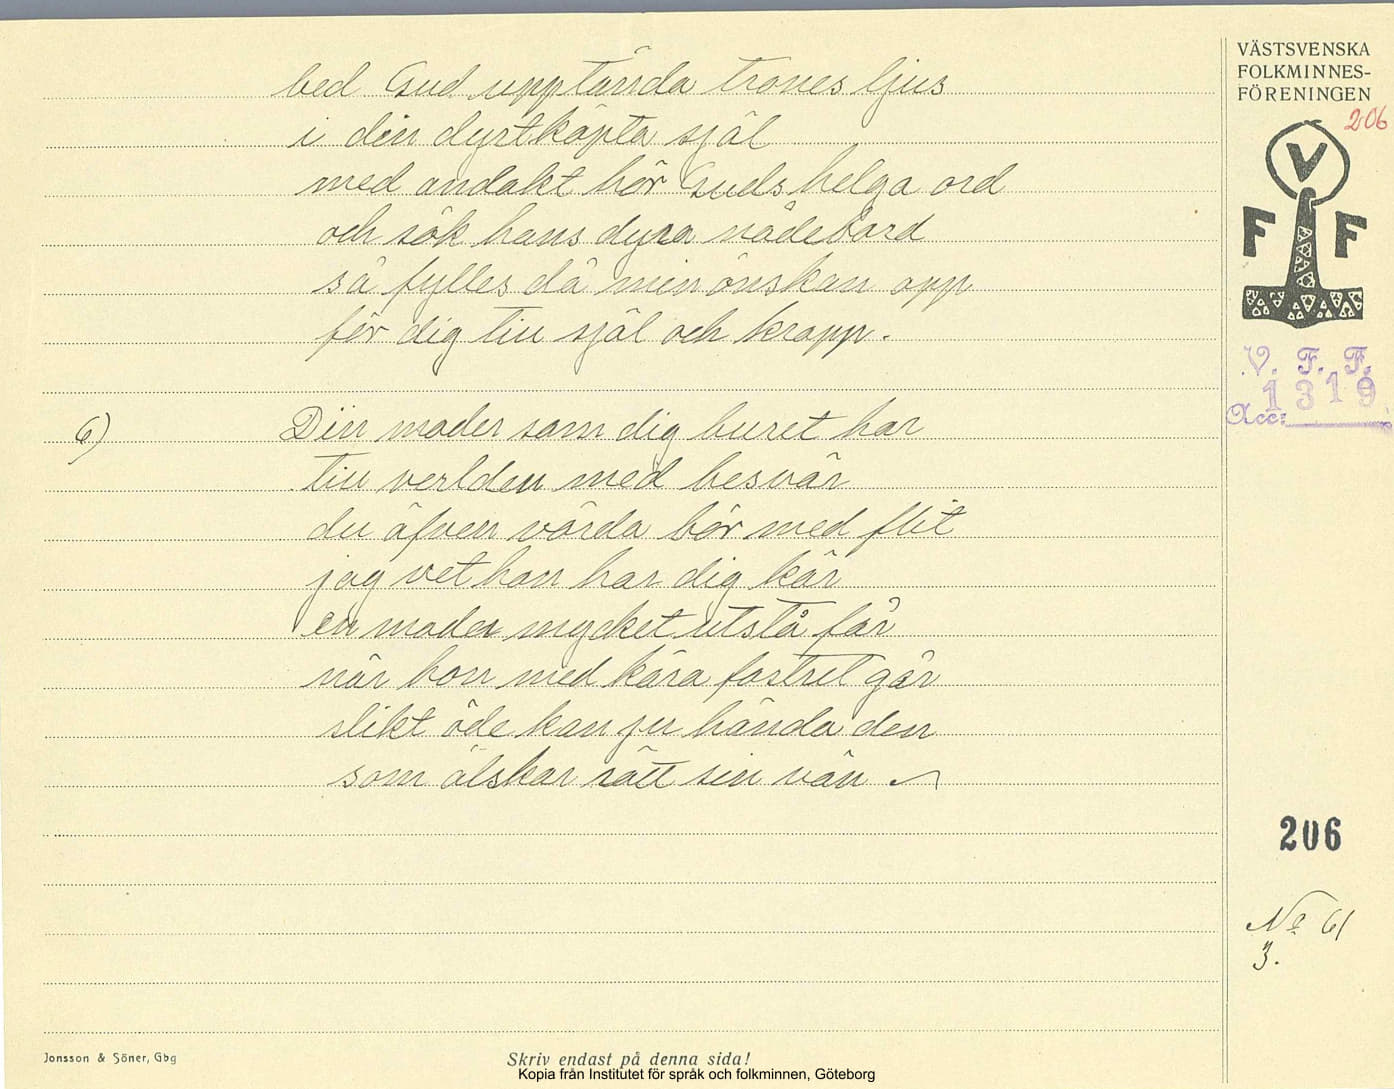 bed Gud upptända trones ljus
i din dyrtköpta själ
med andakt hör Guds helga ord
och sök hans dyra nådebord
så fylles då min önskan opp
för dig till själ och kropp.
6) Din moder som dig buret har
till verlden med besvär
du äfven vårda bör med flit
jag vet hon har dig kär
en moder mycket utstå får
när hon med kära fostret går
slikt öde kan ju hända den
som älskar rätt sin vän
VÄSTSVENSKA
FOLKMINNES-
FÖRENINGEN
206
V
F F
V. F. F.
1319
Acc:
206
No 61
3.
Jonsson & Söner, Gbg
Skriv endast på denna sida!
Kopia från Institutet för språk och folkminnen, Göteborg